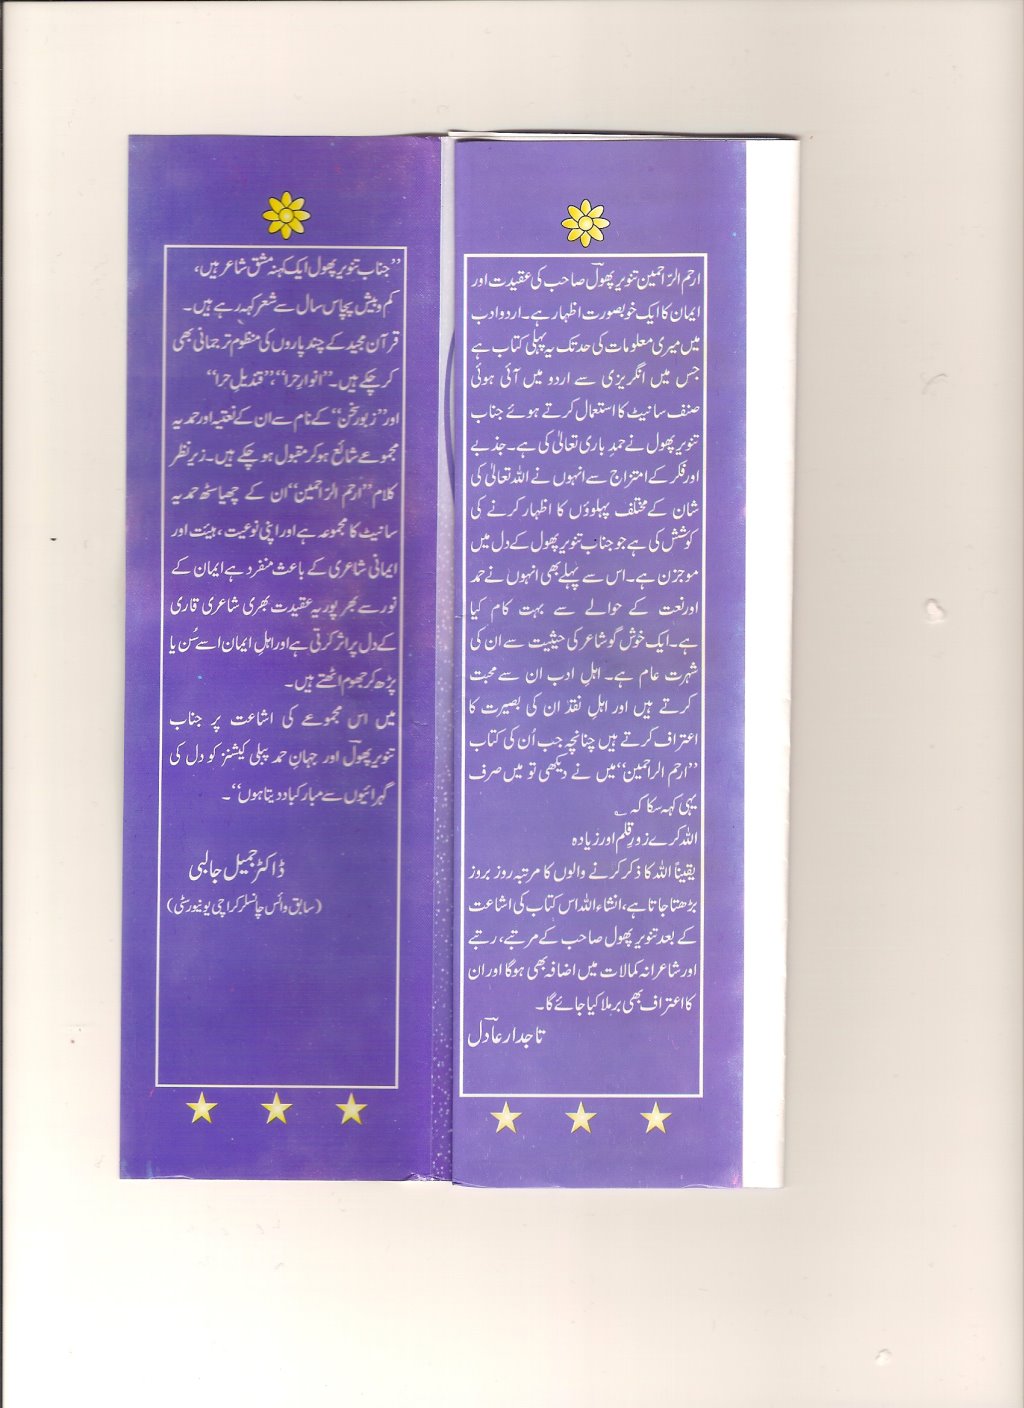 ارحم الرّاحمین تنویر پھولؔ صاحب کی عقیدت اور
ایمان کا ایک خوبصورت اظہار ہے۔ اردو ادب
میں میری معلومات کی حد تک یہ پہلی کتاب ہے
جس میں انگریزی سے اردو میں آئی ہوئی
صنف سانیٹ کا استعمال کرتے ہوئے جناب
تنویر پھول نے حمدِ باری تعالیٰ کی ہے۔ جذبے
اور فکر کے امتزاج سے انہوں نے اللہ تعالیٰ کی
شان کے مختلف پہلوؤں کا اظہار کرنے کی
کوشش کی ہے جو جناب تنویر پھول کے دل میں
موجزن ہے۔ اس سے پہلے بھی انہوں نے حمد
اور نعت کے حوالے سے بہت کام کیا
ہے۔ ایک خوش گو شاعر کی حیثیت سے ان کی
شہرت عام ہے۔ اہلِ ادب ان سے محبت
کرتے ہیں اور اہلِ نقد ان کی بصیرت کا
اعتراف کرتے ہیں چنانچہ جب اُن کی کتاب
”ارحم الراحمین“ میں نے دیکھی تو میں صرف
یہی کہہ سکا کہ ؎
اللہ کرے زورِ قلم اور زیادہ
یقیناً اللہ کا ذکر کرنے والوں کا مرتبہ روز بروز
بڑھتا جاتا ہے، انشاء اللہ اس کتاب کی اشاعت
کے بعد تنویر پھول صاحب کے مرتبے، رتبے
اور شاعرانہ کمالات میں اضافہ بھی ہوگا اور ان
کا اعتراف بھی برملا کیا جائے گا۔
تاجدار عادلؔ
”جناب تنویر پھول ایک کہنہ مشق شاعر ہیں،
کم و بیش پچاس سال سے شعر کہہ رہے ہیں۔
قرآن مجید کے چند پاروں کی منظوم ترجمانی بھی
کر چکے ہیں۔ ”انوارِ حرا“،”قندیلِ حرا“
اور ”زبورِ سخن“ کے نام سے ان کے نعتیہ اور حمدیہ
مجموعے شائع ہو کر مقبول ہو چکے ہیں۔ زیرِ نظر
کلام ”ارحم الرّاحمین“ ان کے چھیاسٹھ حمدیہ
سانیٹ کا مجموعہ ہے اور اپنی نوعیت، ہیئت اور
ایمانی شاعری کے باعث منفرد ہے ایمان کے
نور سے بھرپور یہ عقیدت بھری شاعری قاری
کے دل پر اثر کرتی ہے اور اہلِ ایمان اسے سُن یا
پڑھ کر جھوم اٹھتے ہیں۔
میں اس مجموعے کی اشاعت پر جناب
تنویر پھولؔ اور جہانِ حمد پبلی کیشنز کو دل کی
گہرائیوں سے مبارکباد دیتا ہوں“۔
ڈاکٹر جمیل جالبی
(سابق وائس چانسلر کراچی یونیورسٹی)